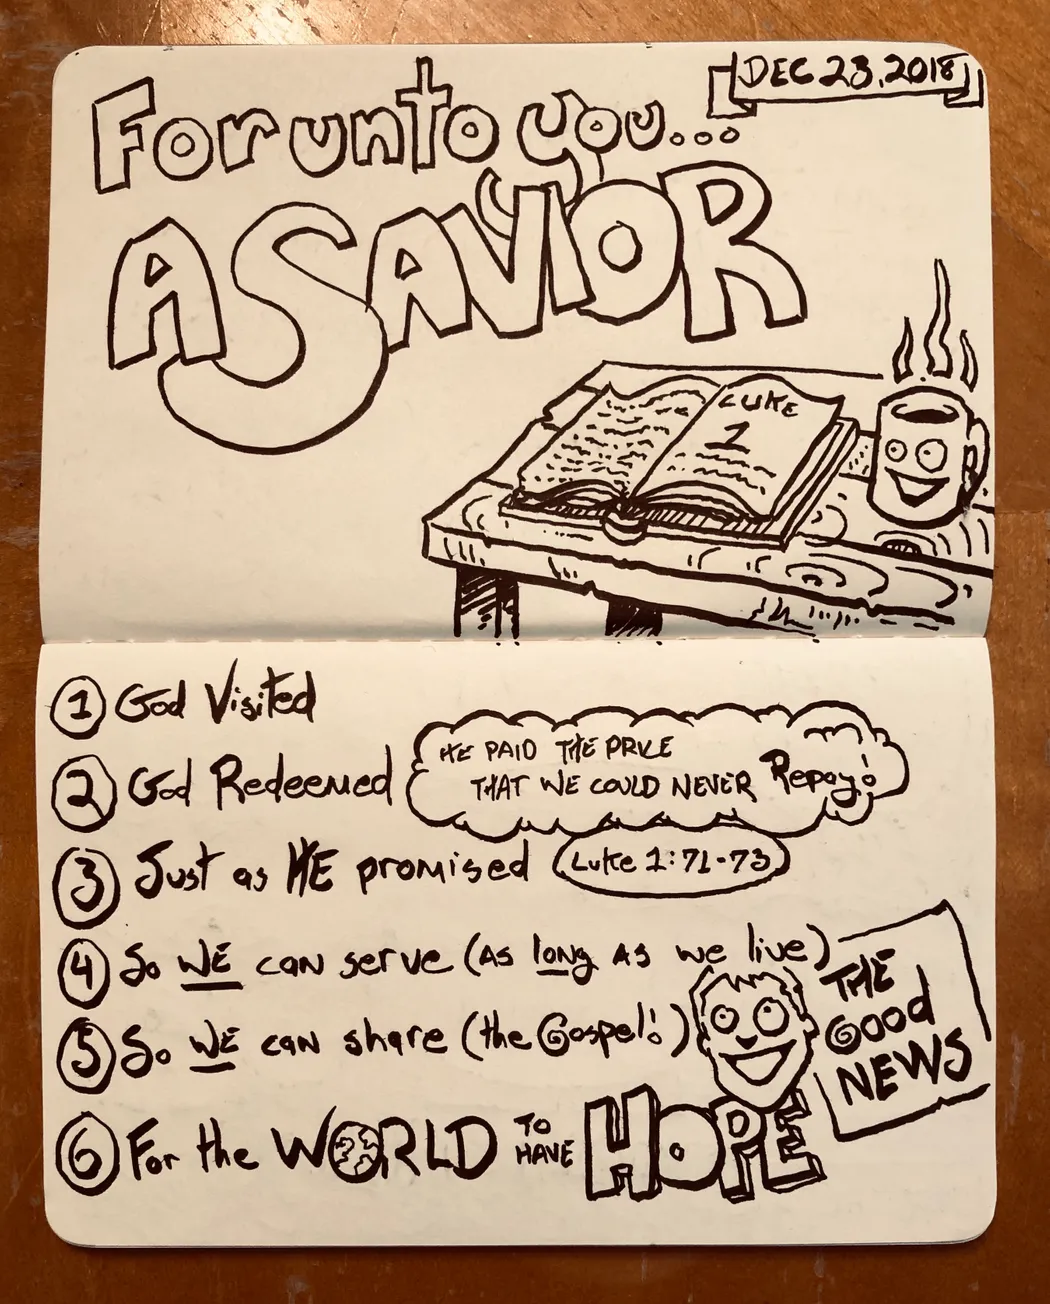 DEC 23, 2018
For unto you...
A SAVIOR
LUKE
1
1 God Visited
2 God Redeemed
HE PAID THE PRICE
THAT WE COULD NEVER Repay!
3 Just as HE promised
Luke 1:71-73
4 So WE can serve (As long As we live)
5 So WE can share (the Gospel!)
THE
Good
NEWS
6 For the WORLD TO HAVE HOPE